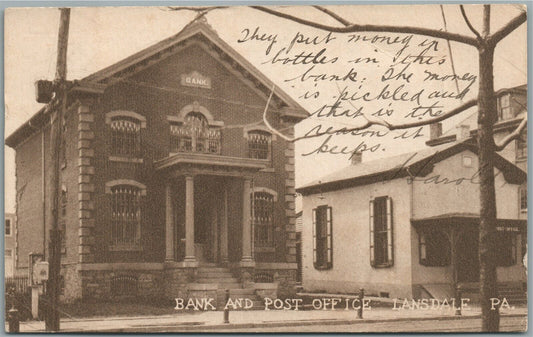 They put money in
bottles in this
bank. The money
is pickled and
that is the
reason it
keeps.
Carol
BANK
POST OFFICE
BANK AND POST OFFICE LANSDALE PA.